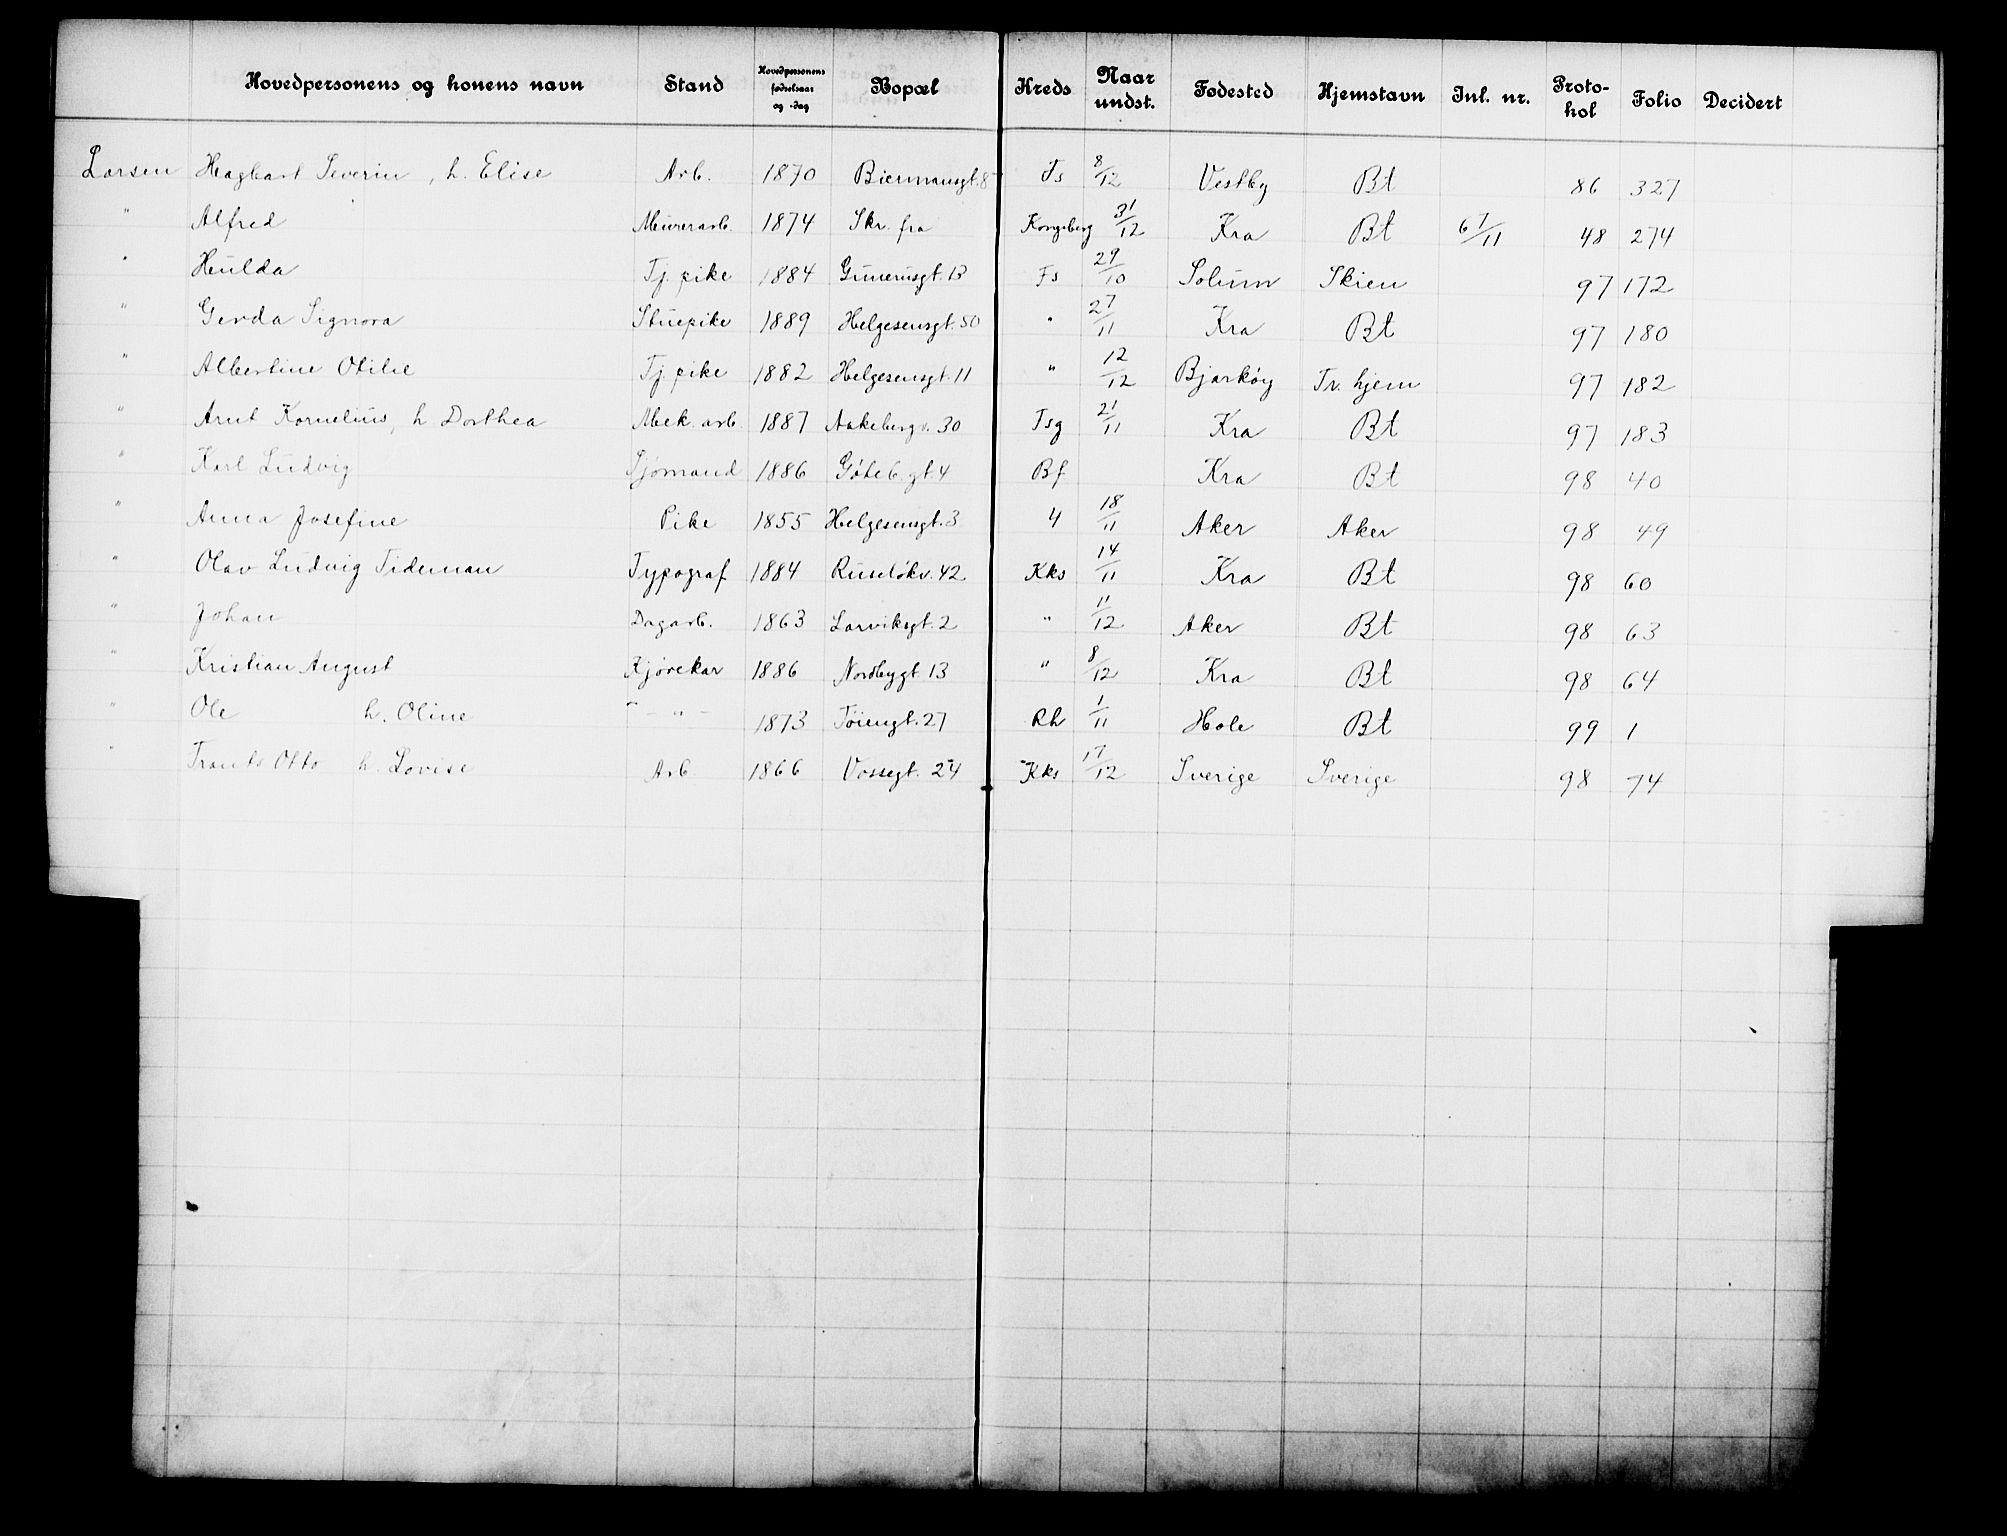 Hovedpersonens og konens navn Stand Hovedpersonens fødselsaar og -dag Bopæl Kreds Naar undst. Fødested Hjemstavn Inl. nr. Proto-kol Folio Decidert
Larsen Hagbart Severin, h. Elise Arb. 1870 Biermansgt. 8 Fs 8/12 Vestby Bt 86 327
" Alfred Murerarb. 1874 Skr. fra Kongsberg 31/12 Kra Bt 67/11 48 274
" Hulda Tj. pike 1884 Gunerusgt. 13 Fs 29/10 Solum Skien 97 172
" Gerda Signora Stuepike 1889 Helgesensgt. 50 " 27/11 Kra Bt 97 180
" Albertine Otilie Tj. pike 1882 Helgesensgt. 11 " 12/12 Bjarköy Tr. hjem 97 182
" Arnt Kornelius, h Dorthea Mek. arb. 1887 Aakebergv. 30 Tsg 21/11 Kra Bt 97 183
" Karl Ludvig Sjömand 1886 Göteb. gt 4 Bf Kra Bt 98 40
" Anna Josefine Pike 1855 Helgesensgt. 3 4 18/11 Aker Aker 98 49
" Olav Ludvig Tideman Typograf 1884 Ruselökv. 42 Kks 14/11 Kra Bt 98 60
" Johan Dagarb. 1863 Larviksgt. 2 " 11/12 Aker Bt 98 63
" Kristian August Kjörekar 1886 Nordbygt 13 " 8/12 Kra Bt 98 64
" Ole h. Oline " 1873 Töiengt. 27 Rh 1/11 Hole Bt 99 1
" Frants Otto h. Lovise Arb 1866 Vossegt. 24 Kks 17/12 Sverige Sverige 98 74